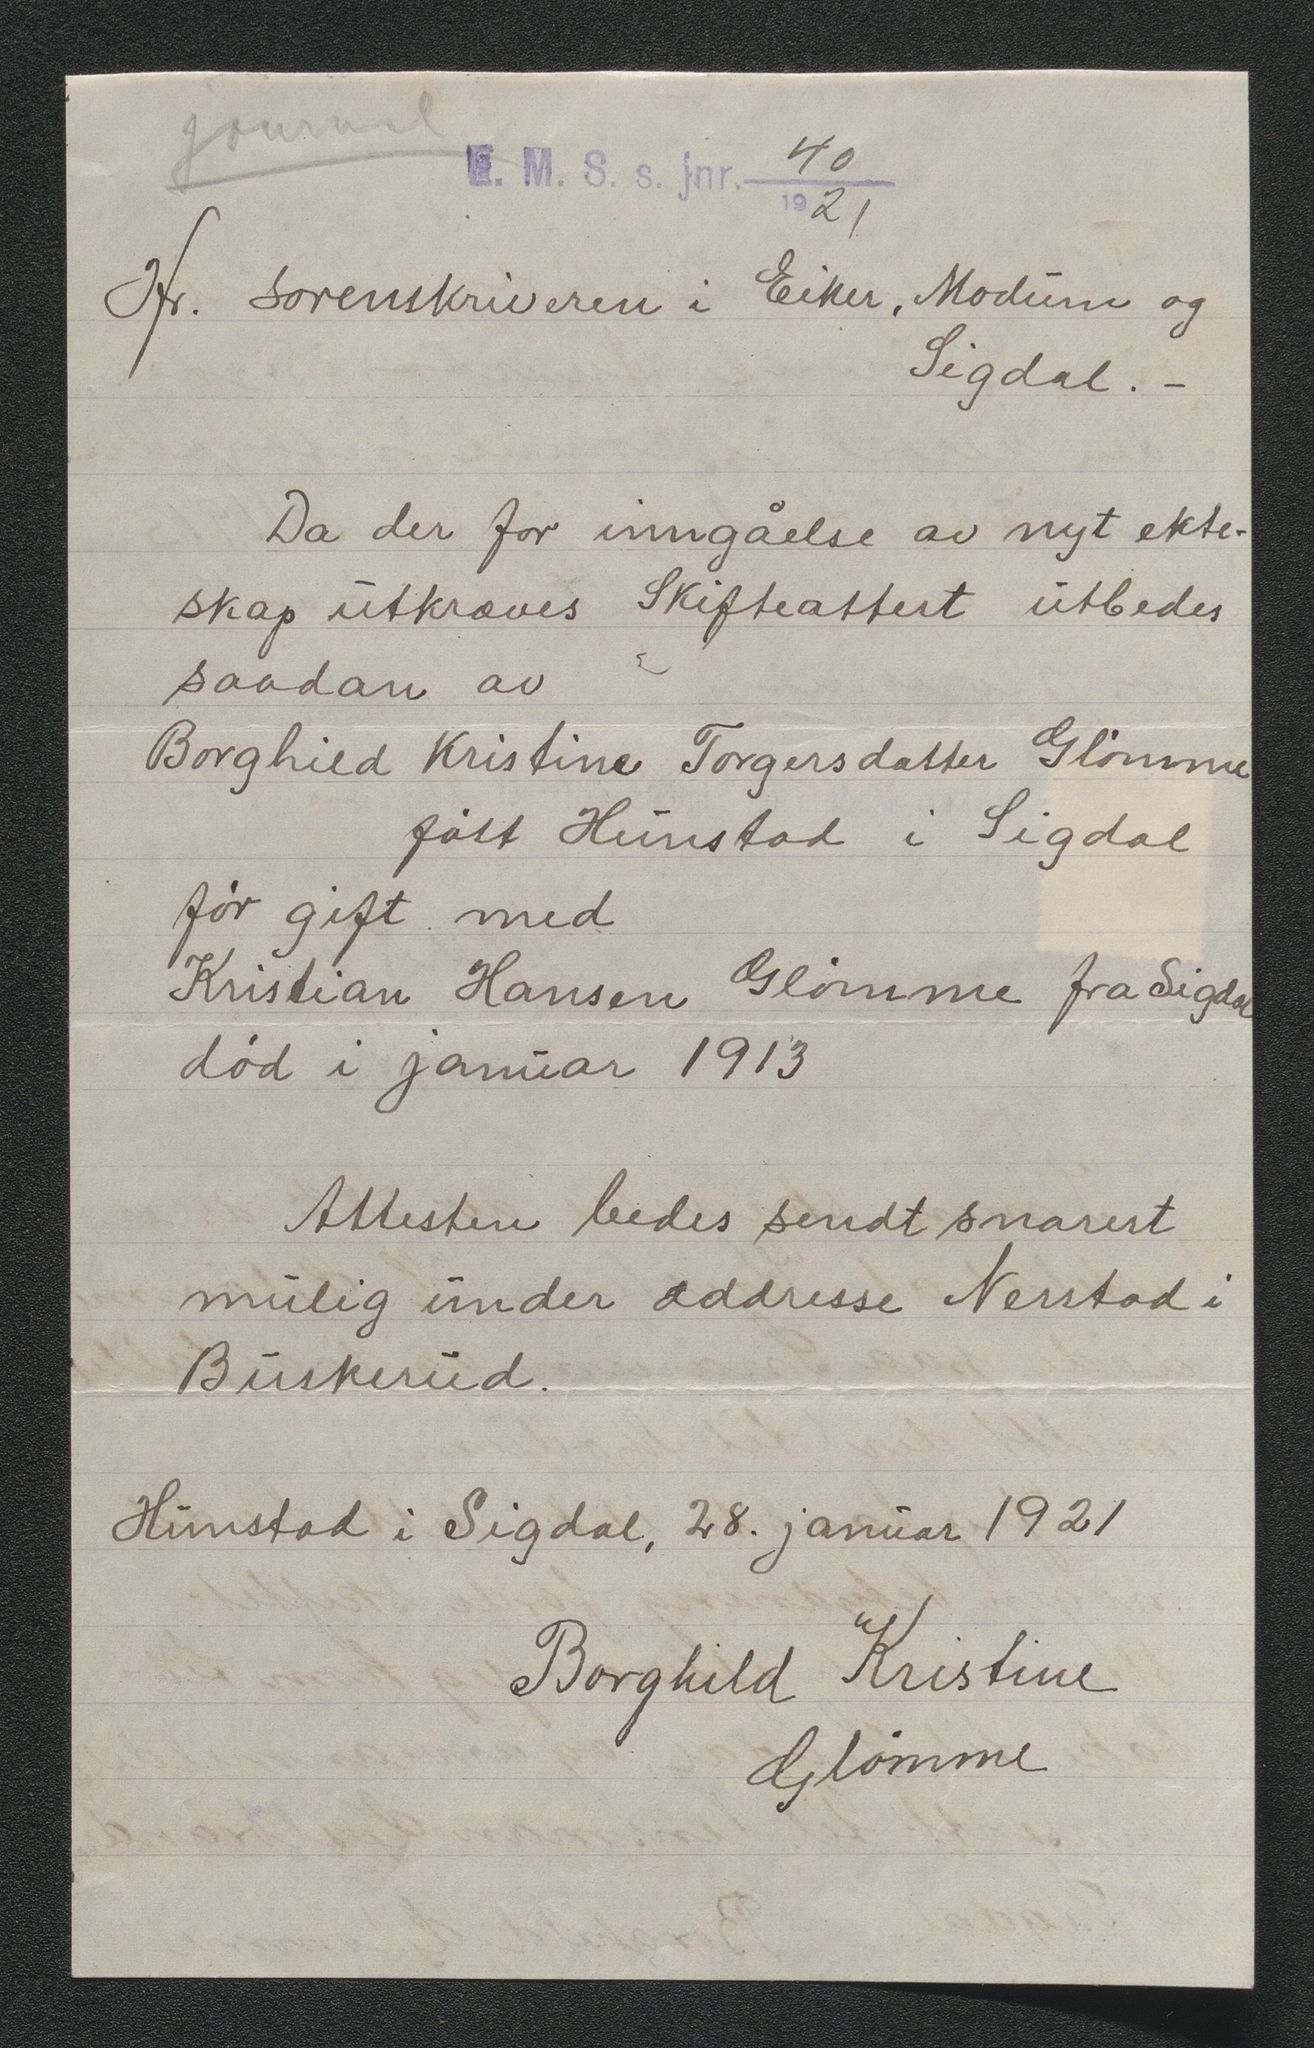 journal
E. M. S. s. jnr. 40
1921
Hr. sorenskriveren i Eiker, Modum og
Sigdal. -
Da der for inngåelse av nyt ekte-
skap utkræves Skifteattest utbedes
saadan av
Borghild Kristine Torgersdatter Glømme
født Hunstad i Sigdal
før gift med
Kristian Hansen Glømme fra Sigdal
død i januar 1913
Attesten bedes sendt snarest
mulig under addresse Nerstad i
Buskerud.
Hunstad i Sigdal, 28. januar 1921
Borghild Kristine
Glømme